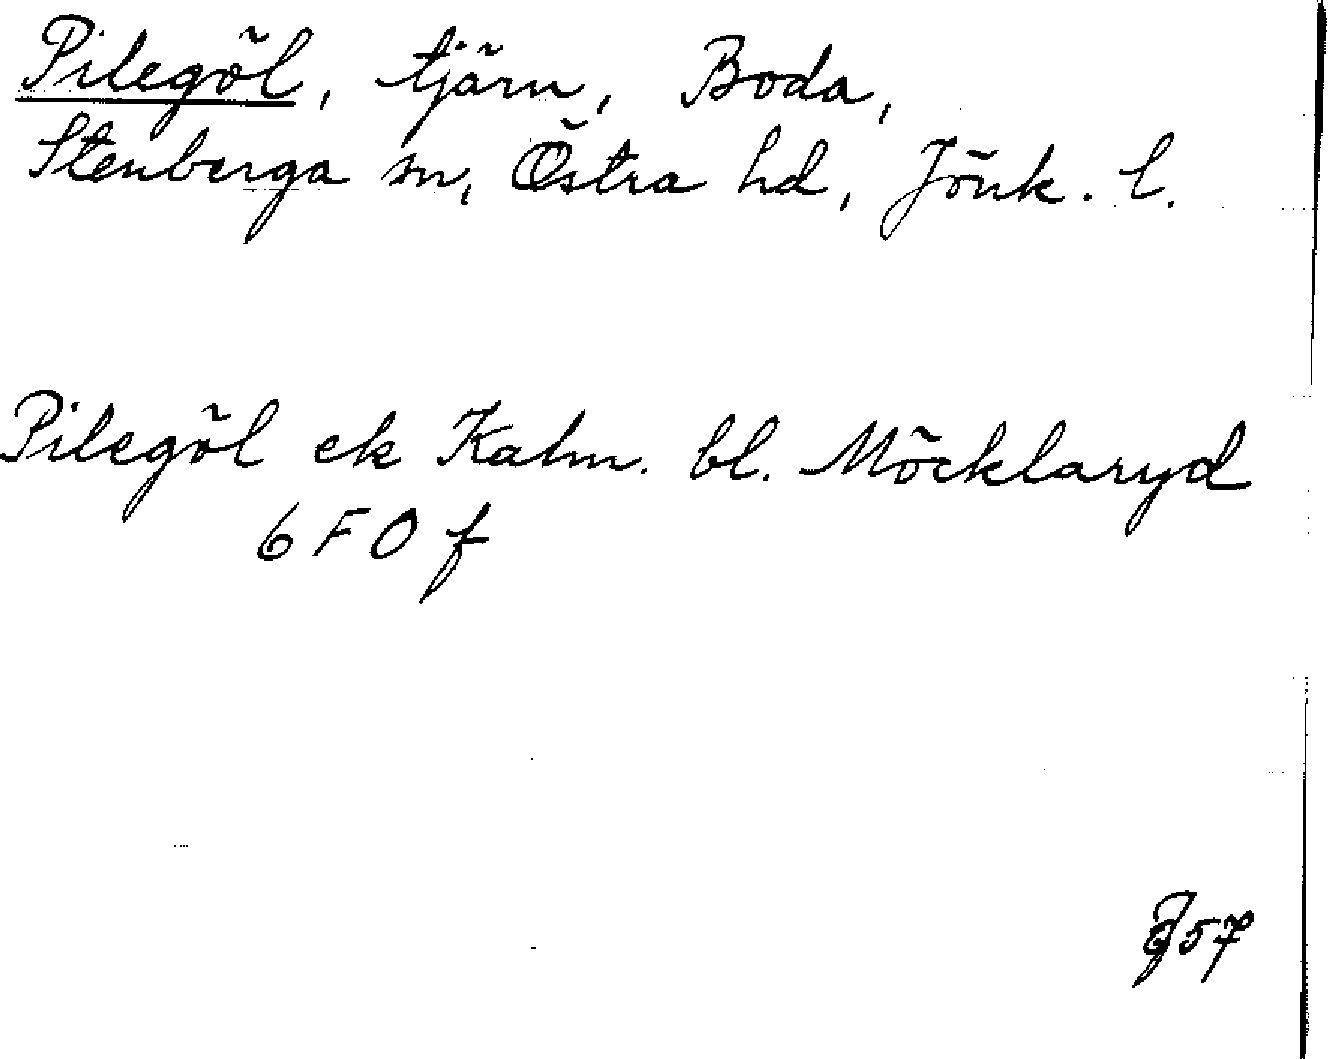 Pilegöl, tjärn, Boda,
Stenberga sn, Östra hd, Jönk. l.
Pilegöl ek Kalm. bl. Möcklaryd
6 F O f
57